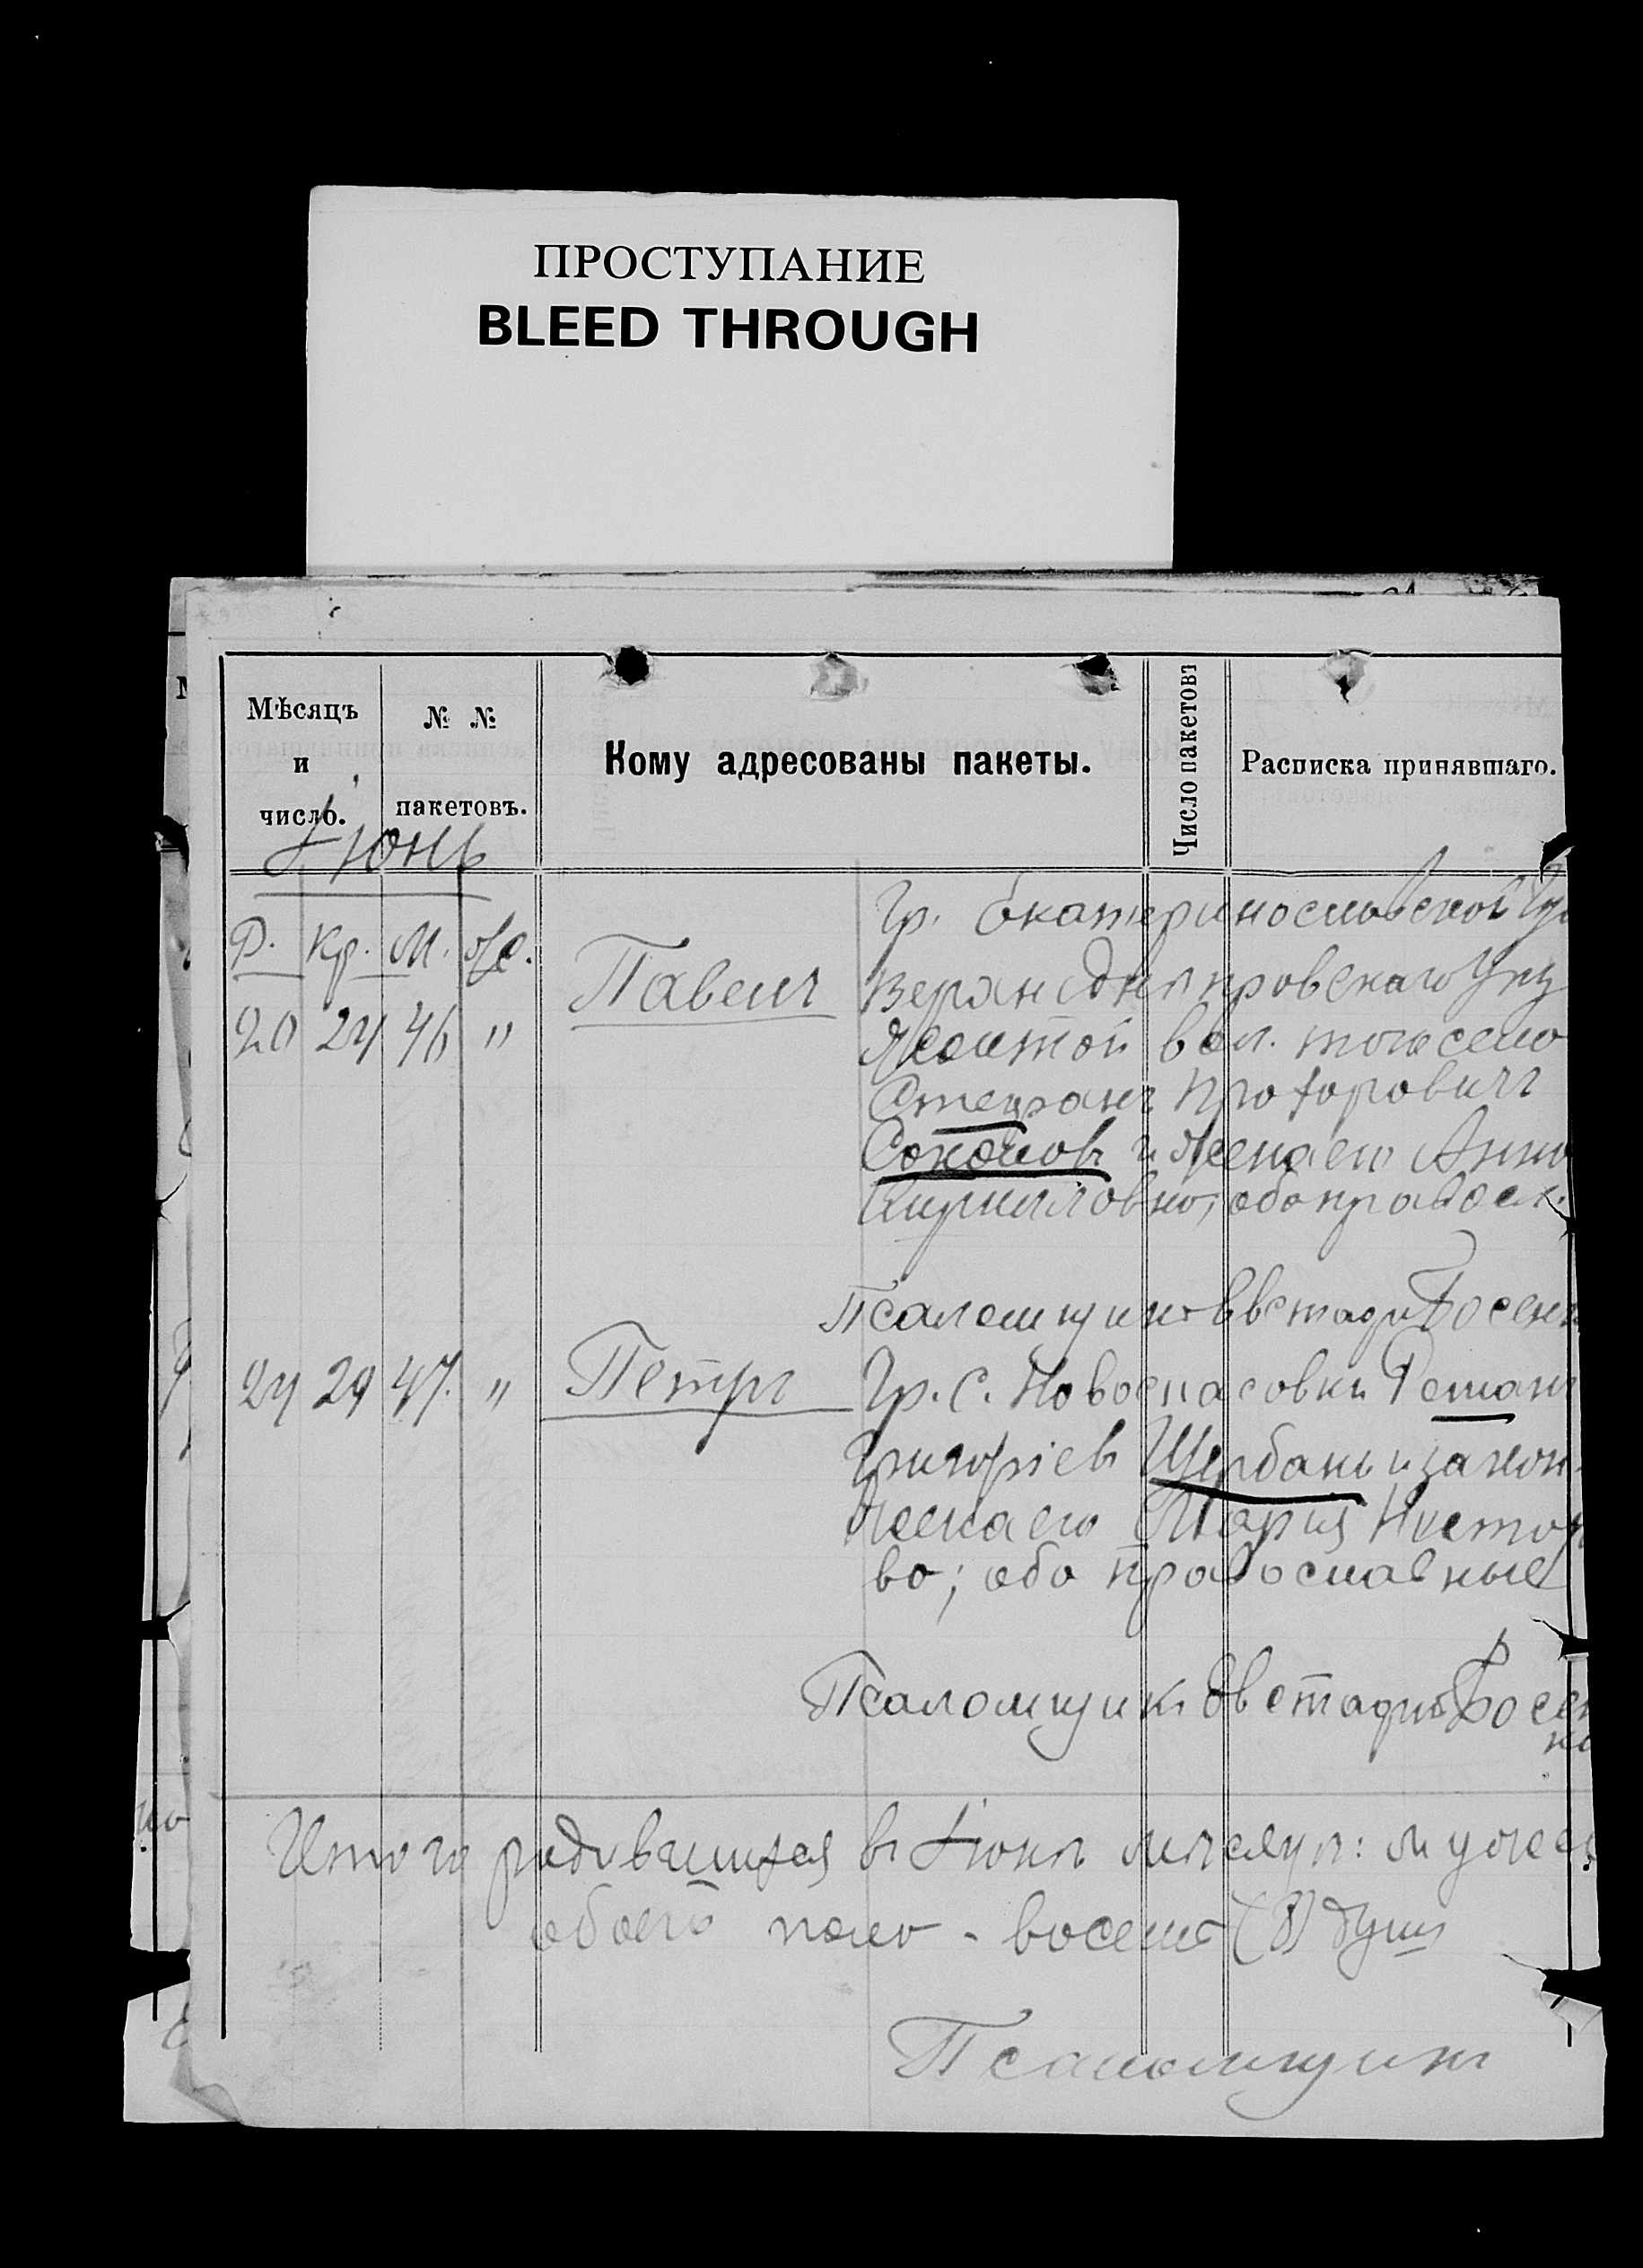 ПРОСТУПАНИЕ
BLEED THROUGH
Мѣсяцъ
и
число.
№ №
пакетовъ.
Кому адресованы пакеты.
Число пакетовъ
Расписка принявшаго.
Іюнь
Р. Кр. М. Ж.
20 24 46 "
Павелъ
Гр. Екатеринославской Гу
Верхнеднѣпровскаго Уѣз
Желтой вол. того село
Стефанъ Прохоровичъ
Соколовъ и жена его Анна
Кирилловна; оба правосл.
Псаломщикъ Евстафій Босен
24 29 47. "
Петръ
Гр. С. Новоспасовки Роман
Григоріевъ Щербань и закон.
жена его Марія Нестор
ва; оба православные
Псаломщикъ Евстафій Босен
ко
Итого родившихся въ Іюнѣ мѣсяцѣ: мужес
обоего пола - восемь (8) душъ
Псаломщикъ